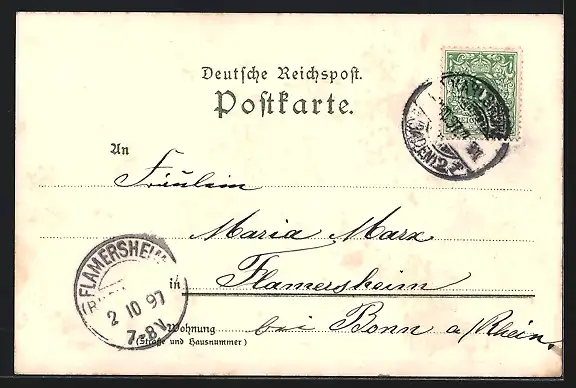 Deutsche Reichspost.
Postkarte.
An
Fräulein
Maria Marx
in Flamersheim
Wohnung bei Bonn a/Rhein.
(Straße und Hausnummer)
FLAMERSHEIM
2 10 97
7-8V.
(BADEN)